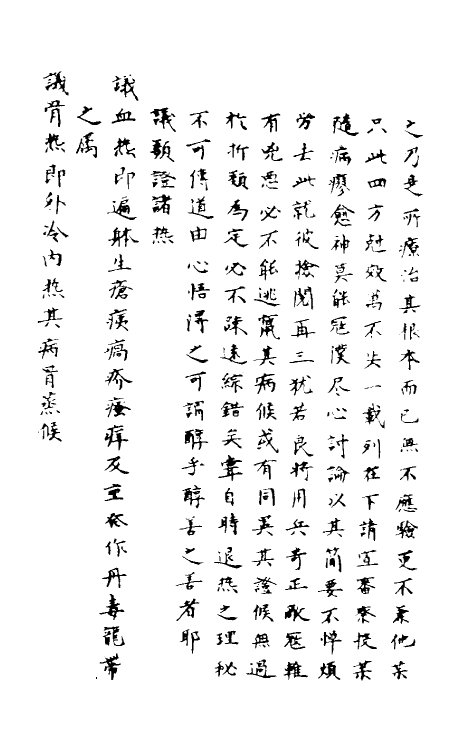 之乃是所療治其根本而已無不應驗更不系他菜
只此四方尅效萬不失一載列在下請宜審察投菜
隨病瘳愈神莫能冠僕尽心討論以其簡要不憚煩
勞去此就彼撿閱再三犹若良将用兵奇正敵冦雖
有兇惡必不能逃竄其病候或有同異其證候無過
扵折類爲定必不疎遠綜錯矣寧自時退热之理秘
不可傳道由心悟得之可謂醇乎醇善之善者耶
議類證諸热
議血热即遍躰生瘡痍癘疥瘙痒及主疼作丹毒龍帶
之属
議骨热即外冷内热其病骨蒸候